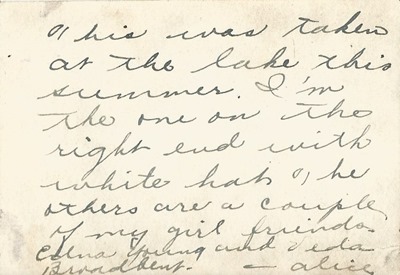 This was taken
at the lake this
summer. I'm
the one on the
right end with
white hat. The
others are a couple
of my girl friends.
Edna Young and Veda
Broadbent. – Alice